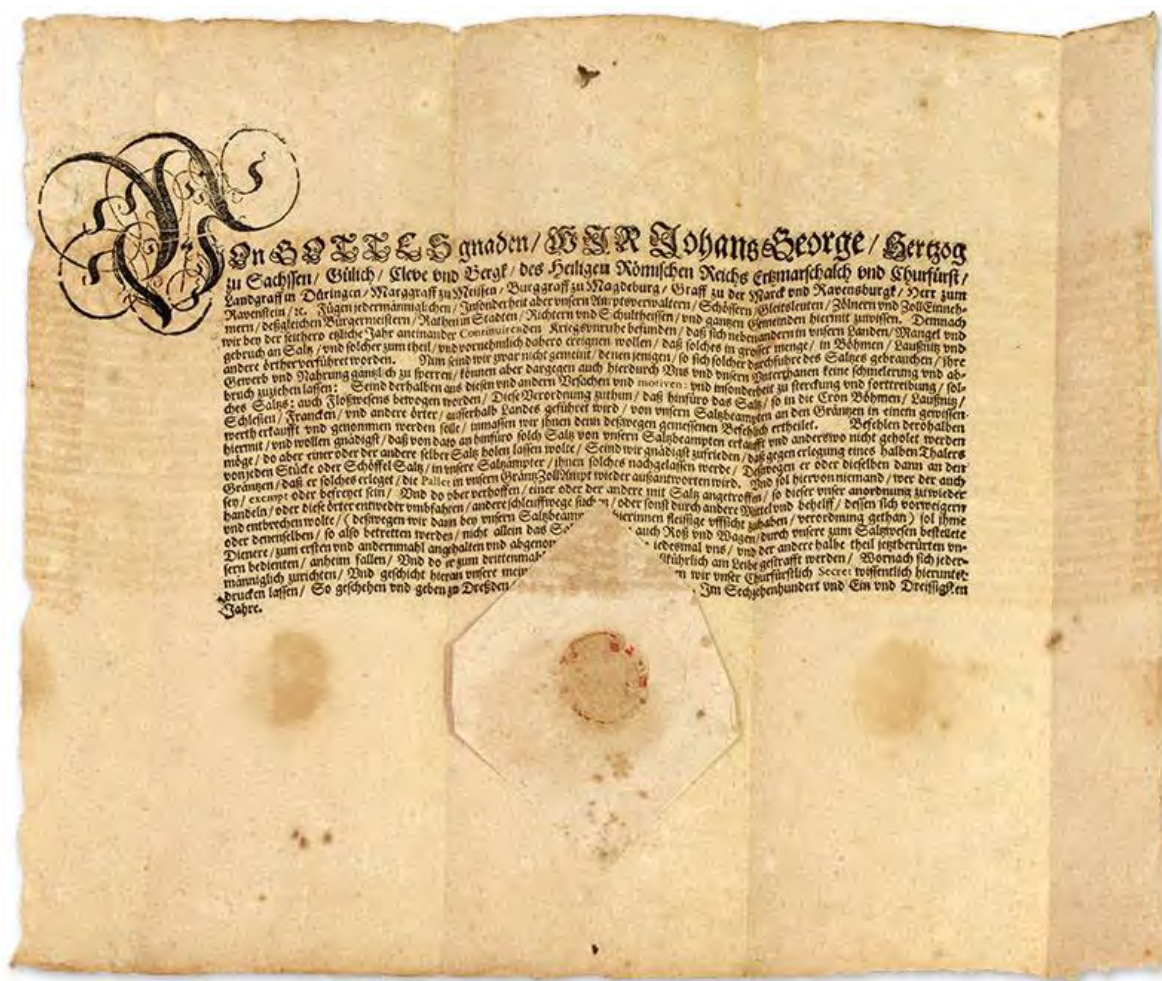 VOn GOTTES gnaden / WIR Johans George / Hertzog
zu Sachssen / Gülich / Cleve vnd Bergk / des Heiligen Römischen Reichs Ertzmarschalch vnd Churfürst /
Landgraff in Düringen / Marggraff zu Meißen / Burggraff zu Magdeburg / Graff zu der Marck vnd Ravensburgk / Herr zum
Ravenstein / ꝛc. Fügen jedermänniglichen / Insonderheit aber vnsern Amptsverwaltern / Schössern / Gleitsleuten / Zölnern vnd Zoll Einneh-
mern / deßgleichen Bürgermeistern / Rathen in Stadten / Richtern vnd Schultheissen / vnd gantzen Gemeinden hiermit zuwissen. Demnach
wir bey der seithero etzliche Jahr aneinander Continuirenden Kriegsvnruhe befunden / daß sich neben andern in vnsern Landen / Mangel vnd
gebruch an Saltz / vnd solcher zum theil / vnd vornehmlich dahero ereignen wollen / daß solches in grosser menge / in Böhmen / Laußnitz vnd
andere örther verführet worden. Nun seind wir zwar nicht gemeint / denen jenigen / so sich solcher durchfuhre des Saltzes gebrauchen / ihre
Gewerb vnd Nahrung gäntzlich zu sperren / können aber dargegen auch hierdurch Vns vnd vnsern Vnterthanen keine schmelerung vnd ab-
bruch zuziehen lassen: Seind derhalben aus diesen vnd andern Vrsachen vnd motiven: vnd insonderheit zu sterckung vnd forttreibung / sol-
ches Saltz: auch Floßwesens bewogen worden / Diese Verordnung zuthun / daß hinfüro das Saltz / so in die Cron Böhmen / Laußnitz /
Schlesien / Francken / vnd andere örter / ausserhalb Landes geführet wird / von vnsern Saltzbeampten an den Gräntzen in einem gewissen
werth erkaufft vnd genommen werden solle / inmassen wir ihnen denn deßwegen gemessenen Befehlich ertheilet. Befehlen derohalben
hiermit / vnd wollen gnädigst / daß von dato an hinfüro solch Saltz von vnsern Saltzbeampten erkaufft vnd anderswo nicht geholet werden
möge / do aber einer oder der andere selber Saltz holen lassen wolte / Seind wir gnädigst zufrieden / daß gegen erlegung eines halben Thalers
von jeden Stücke oder Schöffel Saltz / in vnsere Saltzämpter / ihnen solches nachgelassen werde / Deßwegen er oder dieselben dann an den
Gräntzen / daß er solches erleget / die Pallet in vnsern Gräntz Zoll Ampt wieder außantworten wird. Vnd sol hiervon niemand / wer der auch
sey / exempt oder befreyet sein / Vnd do vber verhoffen / einer oder der andere mit Saltz angetroffen / so dieser vnser anordnung zuwieder
handeln / oder diese örter entweder vmbfahren / andere schleuffwege suchen / oder sonst durch andere Mittel vnd behelff / dessen sich vorweigern
vnd entbrechen wolte / ( deßwegen wir dann bey vnsern Saltzbeampten hierinnen fleissige vffsicht zuhaben / verordnung gethan ) sol ihme
oder denenselben / so also betretten werden / nicht allein das Sal auch Roß vnd Wagen / durch vnsere zum Saltzwesen bestellete
Dienere / zum ersten vnd andernmahl angehalten vnd abgenom jedesmal vns / vnd der andere halbe theil jetztberürten vn-
sern bedienten / anheim fallen / Vnd do er zum drittenmahl kührlich am Leibe gestrafft werden / Wornach sich jeder-
männiglich zurichten / Vnd geschicht hieran vnsere mein rn wir vnser Churfürstlich Secret wissentlich hierunter
drucken lassen / So geschehen vnd geben zu Dreßden . Im Sechzehenhundert vnd Ein vnd Dreissigsten
Jahre.